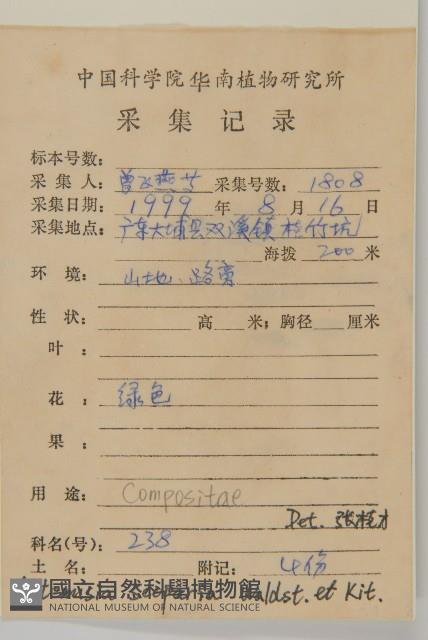 中国科学院华南植物研究所
采集记录
标本号数：
采集人：曾飞燕等 采集号数：1808
采集日期：1999年8月16日
采集地点：广东大埔县双溪镇 竹坑
海拨 200 米
环境：山地、路旁
性状： 高 米；胸径 厘米
叶：
花：绿色
果：
用途：Compositae
Det. 张桂才
科名(号)：238
土名： 附记：4份
Artemisia scoparia Waldst. et Kit.
國立自然科學博物館
NATIONAL MUSEUM OF NATURAL SCIENCE